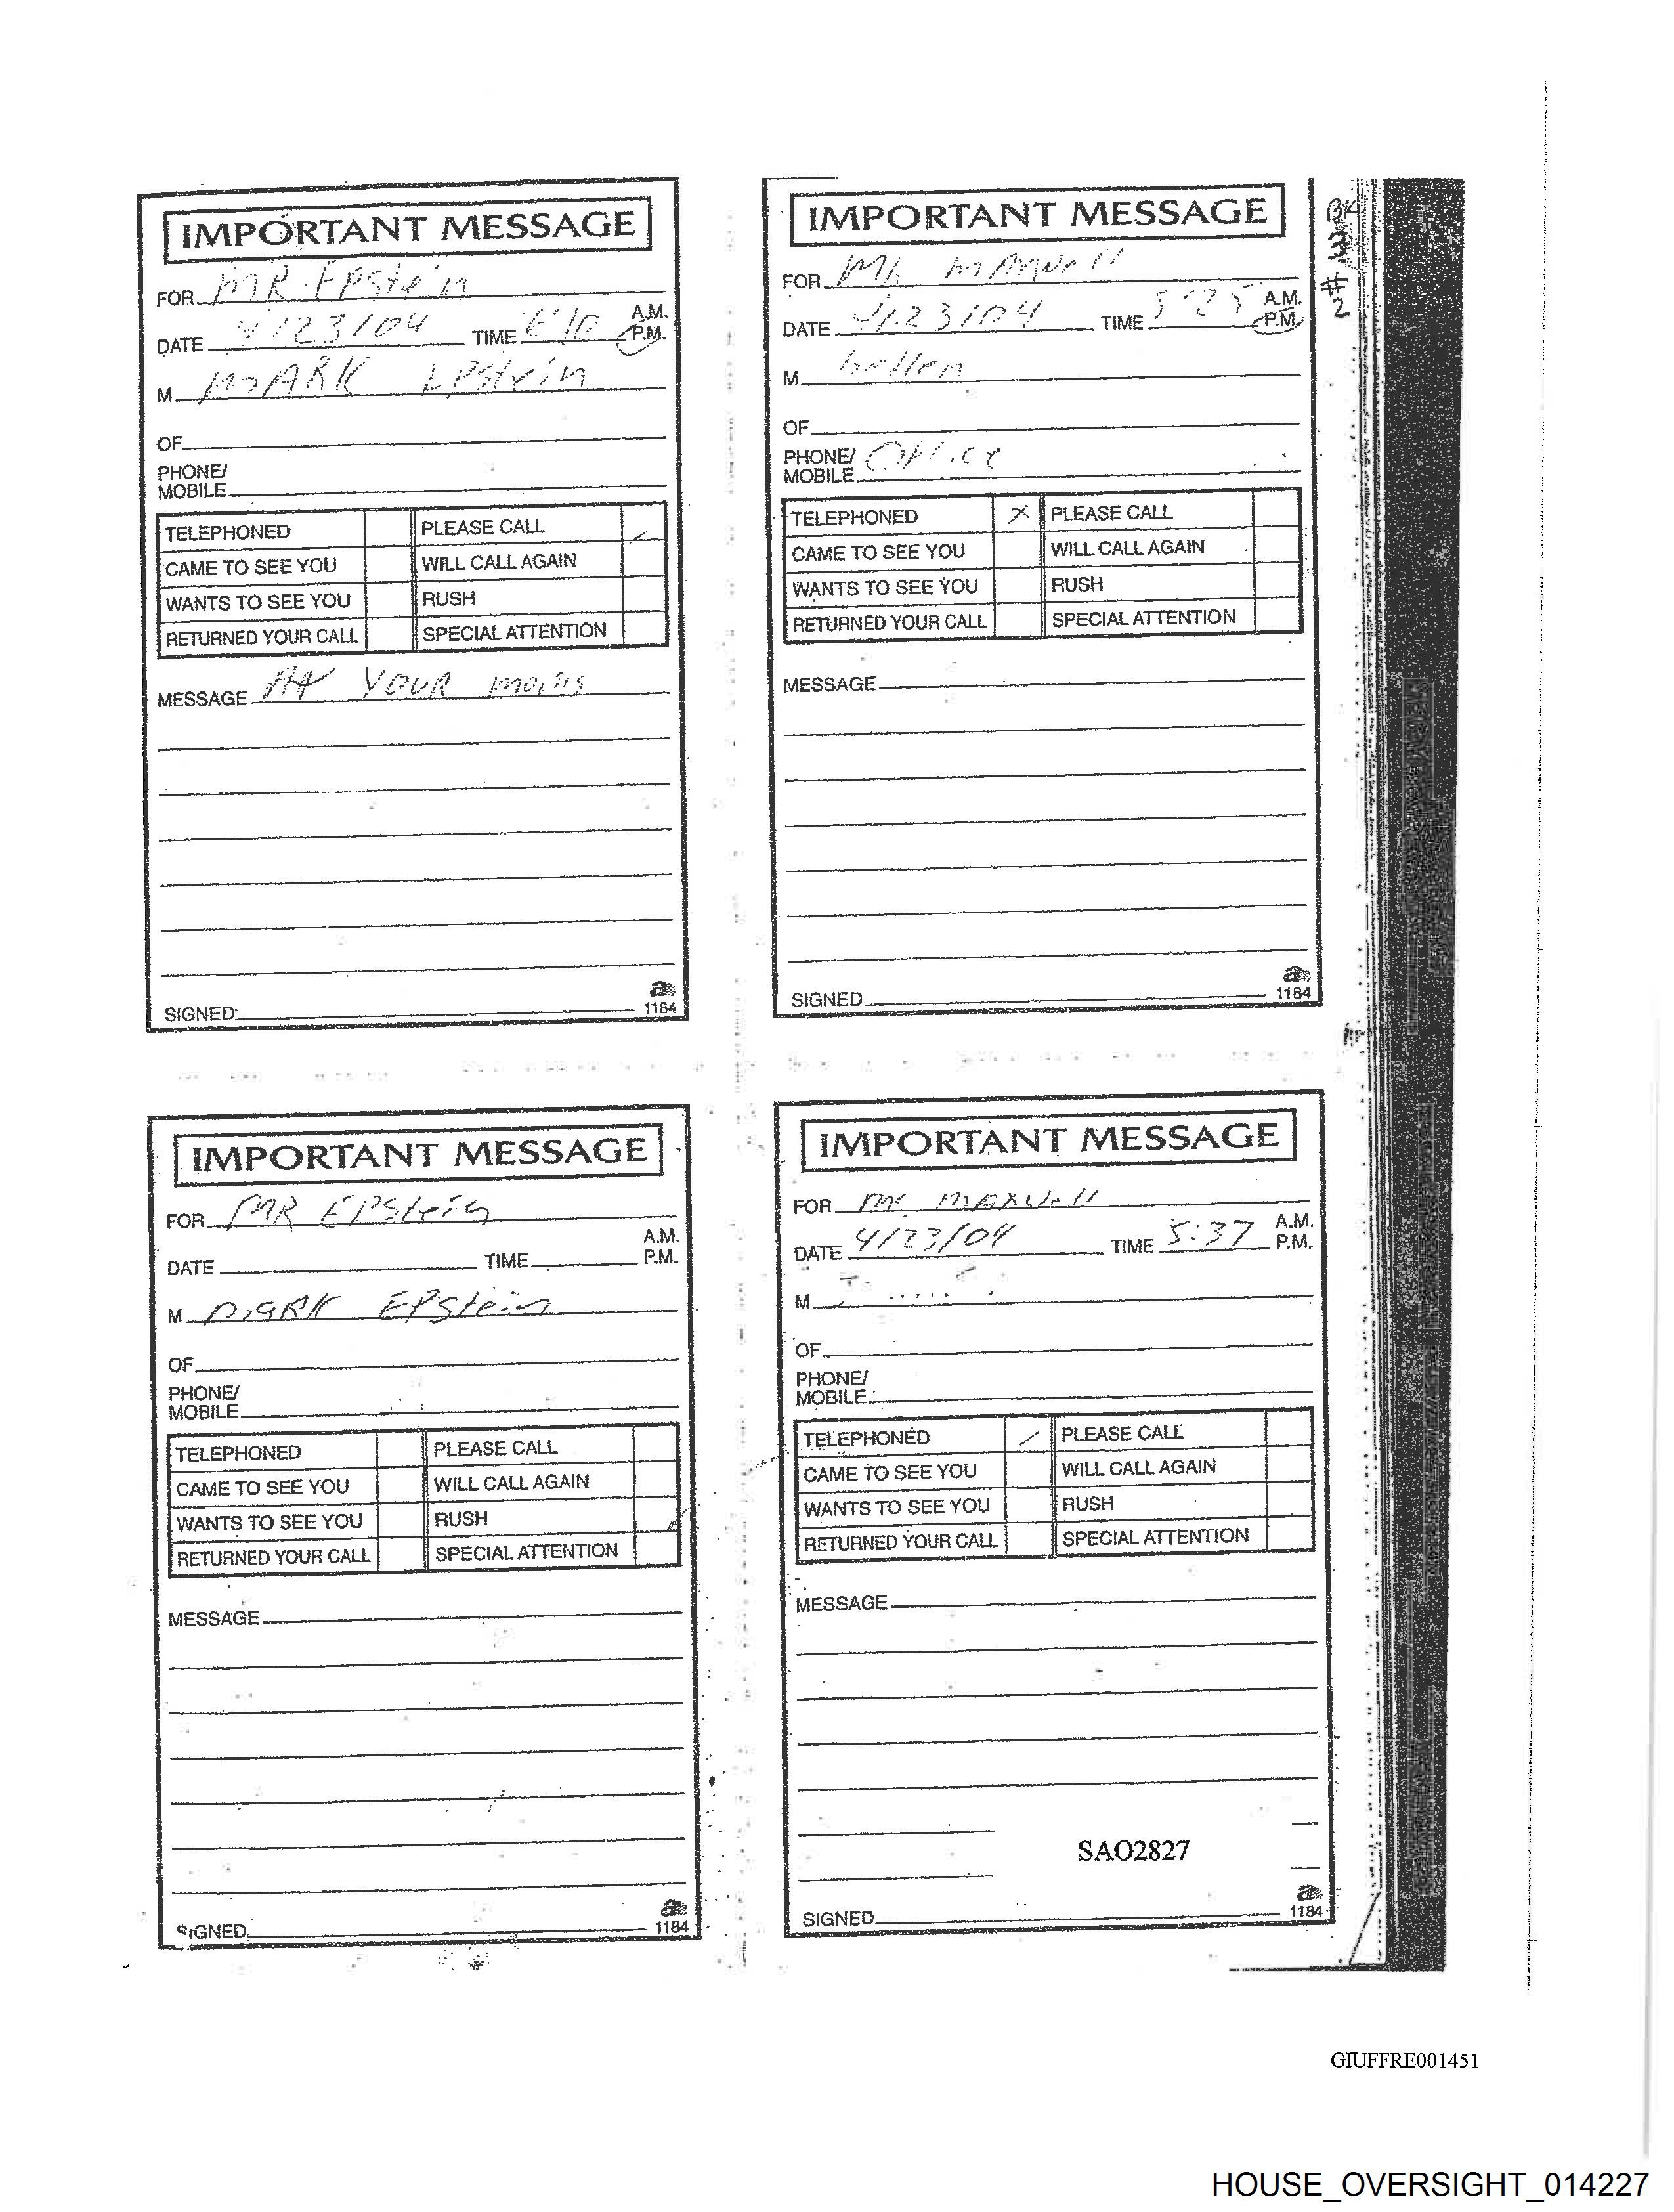 IMPORTANT MESSAGE
FOR MR. EPStein
DATE 4/23/04 TIME A.M.
P.M.
M MARK EPStein
OF
PHONE/
MOBILE
TELEPHONED PLEASE CALL
CAME TO SEE YOU WILL CALL AGAIN
WANTS TO SEE YOU RUSH
RETURNED YOUR CALL SPECIAL ATTENTION
MESSAGE At YOUR
SIGNED
a
1184
IMPORTANT MESSAGE
FOR
DATE 4/23/04 TIME 5:25 A.M.
P.M.
M
OF
PHONE/
MOBILE Office
TELEPHONED X PLEASE CALL
CAME TO SEE YOU WILL CALL AGAIN
WANTS TO SEE YOU RUSH
RETURNED YOUR CALL SPECIAL ATTENTION
MESSAGE
SIGNED
a
1184
BK
#
2
IMPORTANT MESSAGE
FOR MR EPStein
DATE TIME A.M.
P.M.
M MARK EPStein
OF
PHONE/
MOBILE
TELEPHONED PLEASE CALL
CAME TO SEE YOU WILL CALL AGAIN
WANTS TO SEE YOU RUSH
RETURNED YOUR CALL SPECIAL ATTENTION
MESSAGE
SIGNED
a
1184
IMPORTANT MESSAGE
FOR MAXwell
DATE 4/23/04 TIME 5:37 A.M.
P.M.
M
OF
PHONE/
MOBILE
TELEPHONED PLEASE CALL
CAME TO SEE YOU WILL CALL AGAIN
WANTS TO SEE YOU RUSH
RETURNED YOUR CALL SPECIAL ATTENTION
MESSAGE
SAO2827
SIGNED
a
1184
GIUFFRE001451
HOUSE_OVERSIGHT_014227